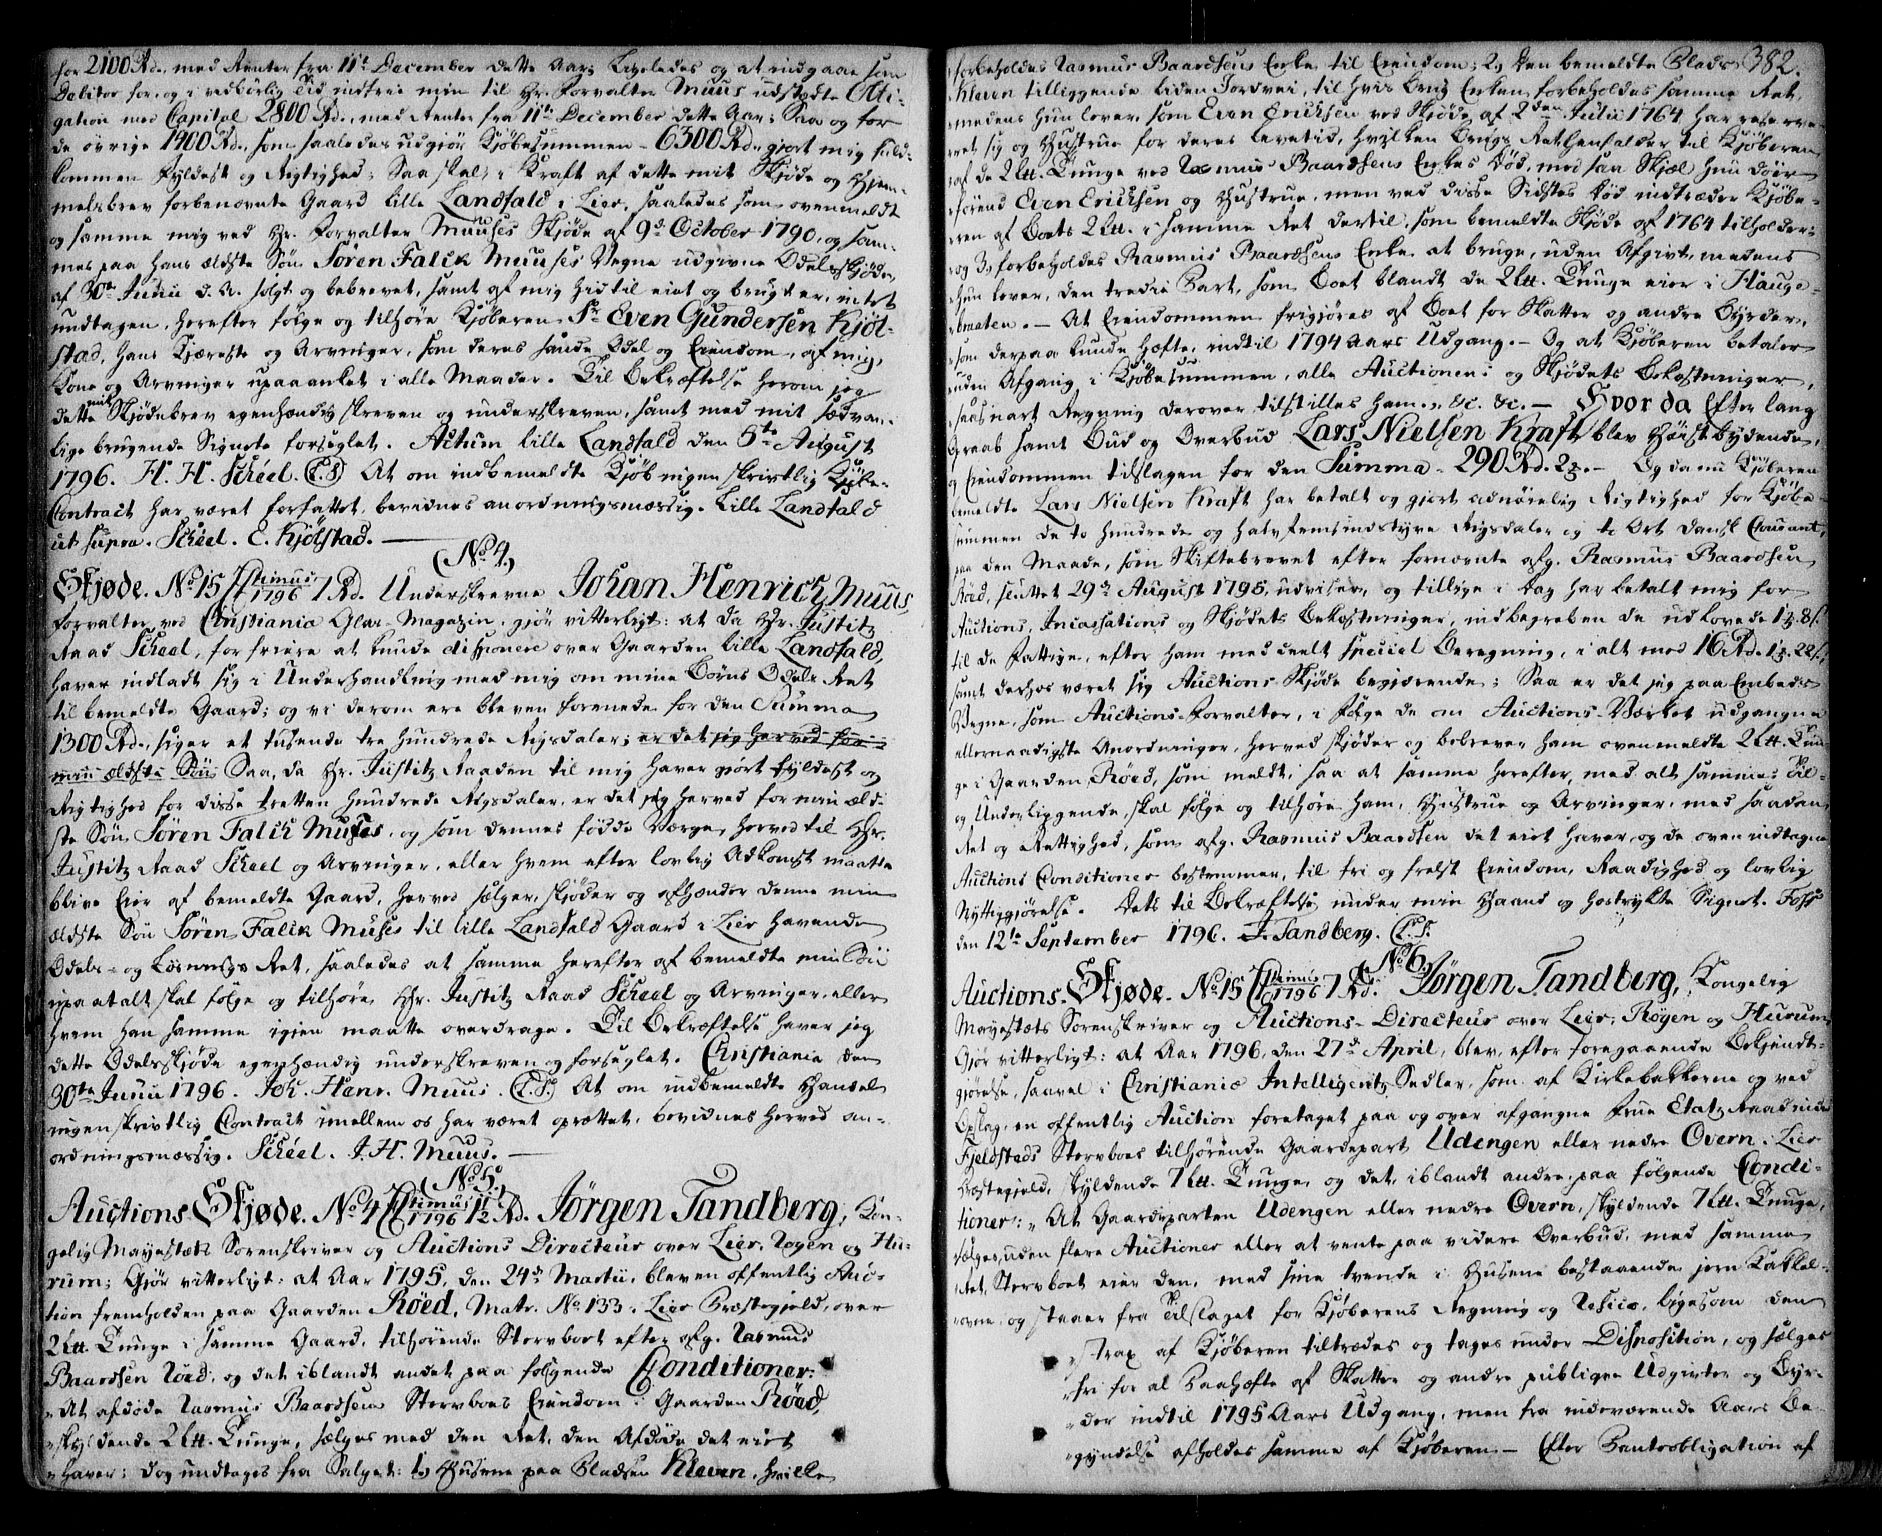 for 2100 Rd., med Renter fra 11te December dette Aar; Ligeledes og at indgaae som
Debitor for, og i vedbørlig Tid indfrie min til Hr. Forvalter Muus udstædte Obli-
gation med Capital 2800 Rd., med Renter fra 11te December dette Aar; Saa og for
de øvrige 1400 Rd., som saaledes udgjør Kjøbesummen - 6300 Rd. gjort mig fuld-
kommen Fyldest og Rigtighed; Saa skal i Kraft af dette mit Skjøde og Hjem-
melsbrev forbenævnte Gaard lille Landfald i Lier, saaledes som ovenmeldt
og samme mig ved Hr. Forvalter Muuses Skjøde af 9de October 1790, og sam-
mes paa hans ældste Søn Søren Falck Muuses Vegne udgivne Odelsskjøde,
af 30te Junii d. A. solgt og bebrevet, samt af mig hidtil eiet og brugt er, intet
undtagen, herefter følge og tilhøre Kjøberen Sr. Even Gundersen Kjøl-
stad, hans Kjæreste og Arvinger, som deres sande Odel og Eiendom, af mig,
Kone og Arvinger upaaanket i alle Maader. Til Bekræftelse herom jeg
dette mit Skjødebrev egenhændig skreven og underskreven, samt med mit sædvan-
lige brugende Signete forseglet. Actum lille Landfald den 5te August
1796. H. H. Scheel. (L.S.) At om indbemeldte Kjøb ingen skrivtlig Kjøbe-
Contract har været forfattet, bevidnes anordningsmæssig. Lille Landfald
ut supra. Scheel. E. Kjølstad.
(No. 4.)
Skjøde. No. 15 1796 1 Rd. Underskrevne Johan Henrich Muus,
Forvalter ved Christiania Glas-Magazin, gjør vitterligt: at da Hr. Justitz
Raad Scheel, for friere at kunde disponere over Gaarden lille Landfald,
haver indladt sig i Underhandling med mig om mine Børns Odels Ret
til bemeldte Gaard; og vi derom ere bleven forenede for den Summa
1300 Rd., siger et tusende tre hundrede Rigsdaler; er det jeg herved for
min ældste Søn Saa, da Hr. Justitz Raaden til mig haver gjort Fyldest og
Rigtighed for disse tretten hundrede Rigsdaler, er det jeg herved for min æld-
ste Søn Søren Falck Muses, og som dennes fødde Værge, herved til Hr.
Justitz Raad Scheel og Arvinger, eller hvem efter lovlig Adkomst maatte
blive Eier af bemeldte Gaard, herved sælger, skjøder og afhænder denne min
ældste Søn Søren Falck Muses til lille Landfald Gaard i Lier havende
Odels- og Løsnings Ret, saaledes at samme herefter af bemeldte min Søn
upaatalt skal følge og tilhøre Hr. Justitz Raad Scheel og Arvinger, eller
hvem han samme igjen maatte overdrage. Til Bekræftelse haver jeg
dette Odelsskjøde egenhændig underskreven og forseglet. Christiania den
30te Junii 1796. Joh. Henr. Muus. (L.S.) At om indbemeldte Handel
ingen skrivtlig Contract imellem os har været oprettet, bevidnes herved an-
ordningsmæssig. Scheel. J. H. Muus.
(No. 5.)
Auctions Skjøde. No. 4 1796 1/2 Rd. Jørgen Tandberg, Kon-
gelig Mayestæts Sorenskriver og Auctions Directeur over Lier, Røgen og Hu-
rum; Gjør vitterligt: at Aar 1795, den 24de Martii, bleven offentlig Auc-
tion fremholden paa Gaarden Röed, Matr. No. 133 i Lier Præstegjeld, over
2 Ltt. Tunge i samme Gaard, tilhørende Stervboet efter afg. Rasmus
Baardsen Röed, og det iblandt andet paa følgende Conditioner:
"At afdøde Rasmus Baardsens Stervboes Eiendom i Gaarden Röed,
"skyldende 2 Ltt. Tunge, sælges med den Ret, den Afdøde det eiet
"haver; dog undtages fra Salget: 1) Husene paa Pladsen Kleven, hvilke
382.
forbeholdes Rasmus Baardsens Enke til Eiendom; 2) den bemeldte Plads
Kleven tilliggende liden Jordvei, til hvis Brug Enken forbeholdes samme Ret,
medens hun lever, som Even Ericksen ved Skjøde af 2den Julii 1764 har reserve-
ret sig og Hustrue for deres Levetid, hvilken Brugs Ret henfalder til Kjøberen
af de 2 Ltt. Tunge ved Rasmus Baardsens Enkes Død, med saa Skjæl hun døer
førend Even Ericksen og Hustrue, men ved disse Sidstes Død indtræder Kjøbe-
ren af Boets 2 Ltt. i samme Ret dertil, som bemeldte Skjøde af 1764 tilholder;
og 3) forbeholdes Rasmus Baardsens Enke at bruge, uden Afgivt, medens
hun lever, den tredie Part, som Boet blandt de 2 Ltt. Tunge eier i Hauge-
braaten. - At Eiendommen frigjøres af Boet for Skatter og andre Byrder,
som derpaa kunde hæfte, indtil 1794 Aars Udgang. - Og at Kjøberen betaler
uden Afgang i Kjøbesummen, alle Auctionens og Skjødets Bekostninger,
saasnart Regning derover tilstilles ham. &c. &c. - Hvorda Efter lang
Opraab samt Bud og Overbud Lars Nielsen Kraft blev Høistbydende,
og Eiendommen tilslagen for den Summa - 290 Rd. 2 . - Og da nu Kjøberen
bemeldte Lars Nielsen Kraft har betalt og gjort adnørlig Rigtighed for Kjøbe-
summen de to hundrede og halvfemsindstyve Rigsdaler og to Ort Dansk Courant,
paa den Maade, som Skiftebrevet efter fornævnte afg. Rasmus Baardsen
Röed, sluttet 29de August 1795, udviser, og tillige i Dag har betalt mig for
Auctions, Incassations og Skjødets Bekostninger, indbegreben de udlovede 1 . 8 s.
til de Fattige, efter ham meddeelt speciel Beregning, i alt med 16 Rd. 1 . 22 s.,
samt derhos været sig Auctions-Skjøde begjærende; Saa er det jeg paa Embeds
Vegne, som Auctions-Forvalter, i Følge de om Auctions-Værket udgangne
allernaadigste Anordninger, herved skjøder og bebrever ham ovenmeldte 2 Ltt. Tun-
ge i Gaarden Röed, som meldt, saa at samme herefter, med alt sammes Til-
og Underliggende, skal følge og tilhøre ham, Hustrue og Arvinger, med saadan
Ret og Rettighed, som afg. Rasmus Baardsen det eiet haver, og de oven indtagne
Auctions Conditioner bestemmer, til fri og frelst Eiendom, Raadighed og lovlig
Nyttiggjørelse. Dets til Bekræftelse under min Haand og hostrykte Signet. Foss
den 12te September 1796. J. Tandberg. (L.S.
(No. 6.)
Auctions-Skjøde. No. 15 1796 1 Rd. Jørgen Tandberg, Kongelig
Mayestæts Sorenskriver og Auctions-Directeur over Lier, Røgen og Hurum,
Gjør vitterligt: at Aar 1796, den 27de April, blev, efter foregaaende Bekjendt-
gjørelse, saavel i Christianiæ Intelligentz-Sedler, som af Kirkebakkerne og ved
Opslag, en offentlig Auction foretaget paa og over afgangne Frue Etatz Raadinde
Fjeldsteds Stervboes tilhørende Gaardepart Udengen eller nedre Overn i Lier
Præstegjeld, skyldende 7 Ltt. Tunge, og det, iblandt andre, paa følgende Condi-
tioner: "At Gaardeparten Udengen eller nedre Overn, skyldende 7 Ltt. Tunge,
sælges, uden flere Auctioner eller at vente paa videre Overbud, med samme
Ret, Stervboet eier den, med sine tvende i Husene bestaaende jern Kakkel-
ovne, og staaer fra Tilslaget for Kjøberens Regning og Resico, ligesom den
"strax af Kjøberen tiltrædes og tages under Disposition, og sælges
"fri for al Paahæfte af Skatter og andre publique Udgivter og Byr-
"der indtil 1795 Aars Udgang, men fra indeværende Aars Be-
"gyndelse afholdes samme af Kjøberen. - Efter Panteobligation af